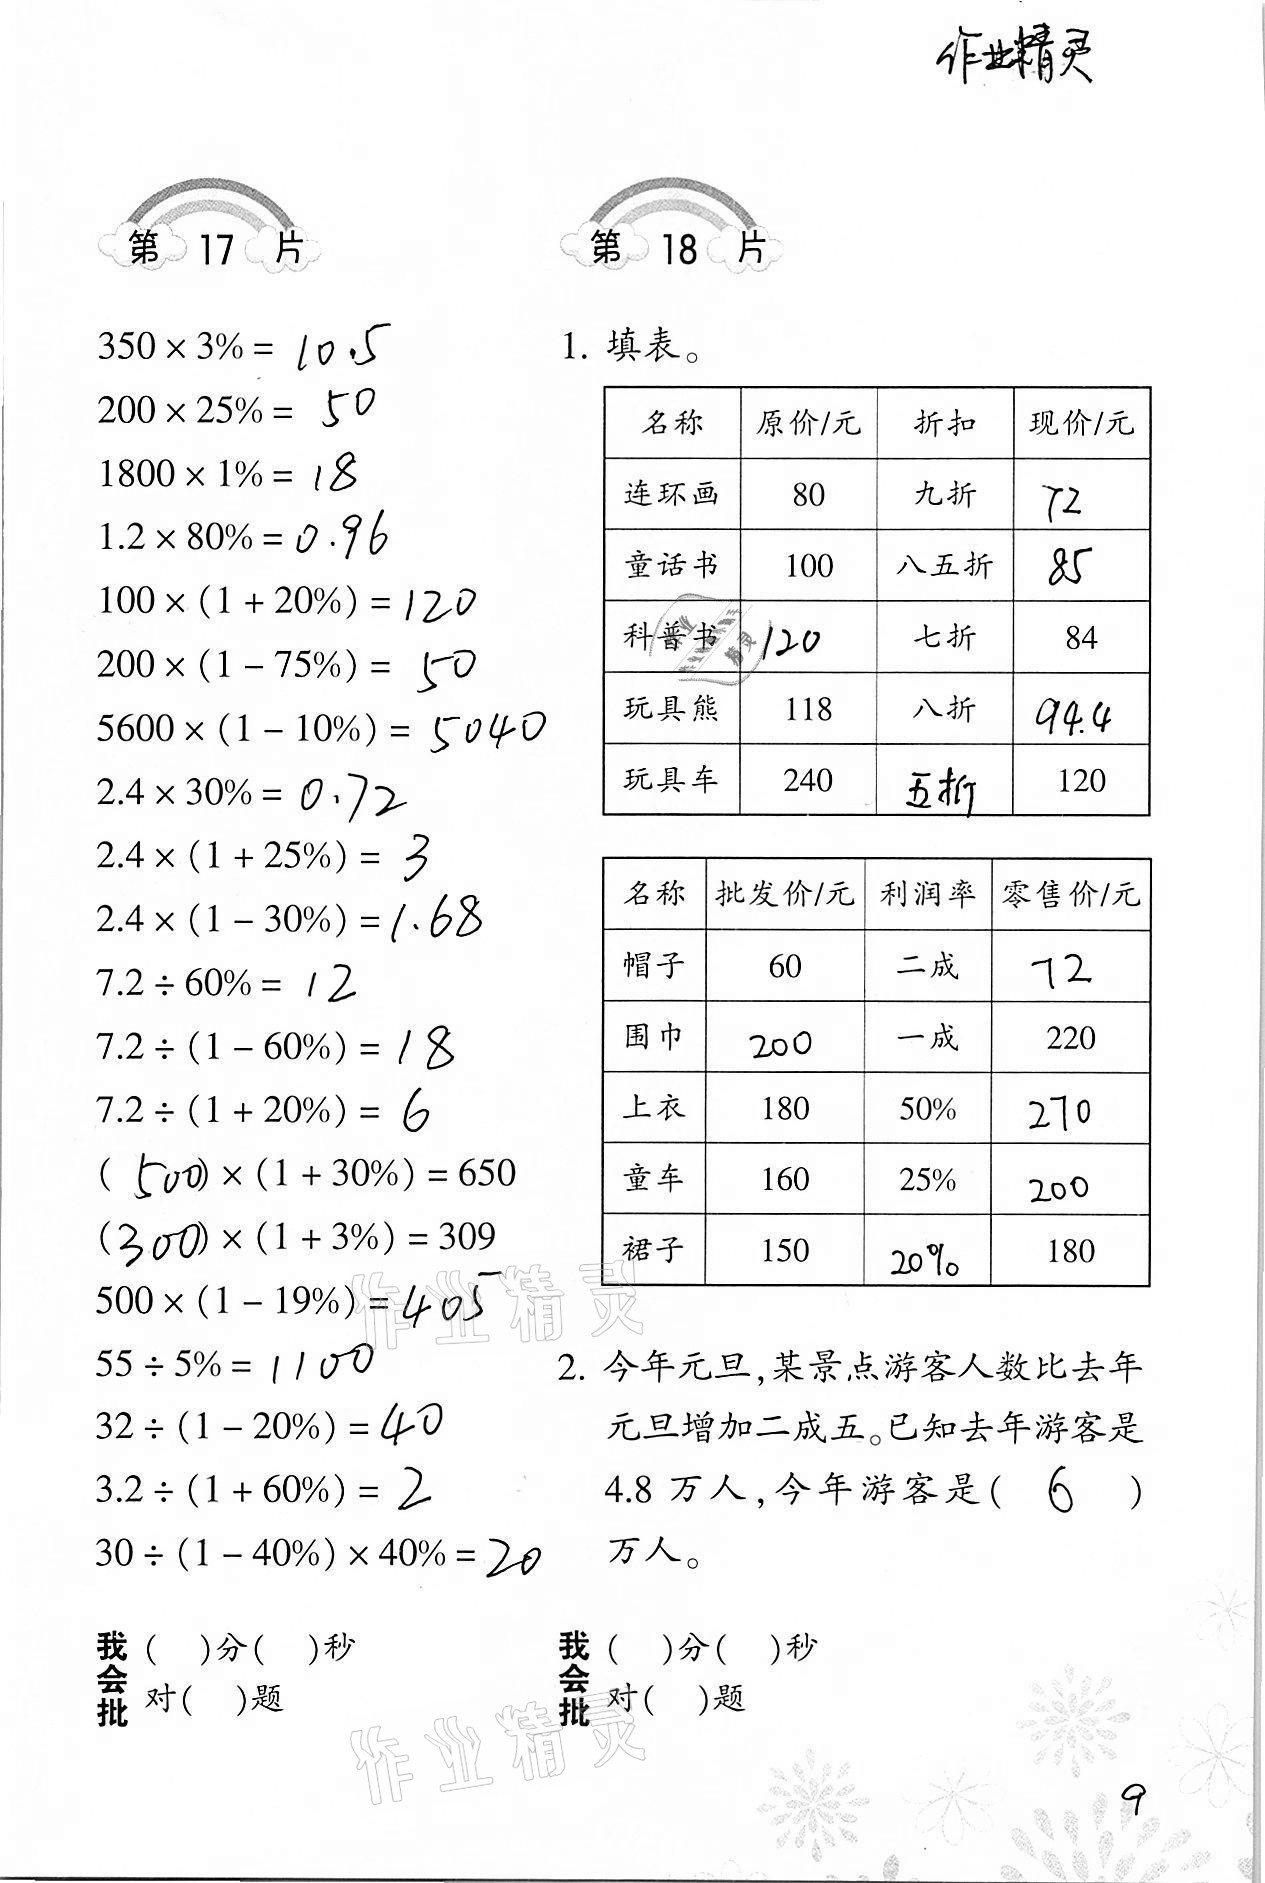 作业精灵
第 17 片
350 × 3% = 10.5
200 × 25% = 50
1800 × 1% = 18
1.2 × 80% = 0.96
100 × (1 + 20%) = 120
200 × (1 − 75%) = 50
5600 × (1 − 10%) = 5040
2.4 × 30% = 0.72
2.4 × (1 + 25%) = 3
2.4 × (1 − 30%) = 1.68
7.2 ÷ 60% = 12
7.2 ÷ (1 − 60%) = 18
7.2 ÷ (1 + 20%) = 6
(500) × (1 + 30%) = 650
(300) × (1 + 3%) = 309
500 × (1 − 19%) = 405
55 ÷ 5% = 1100
32 ÷ (1 − 20%) = 40
3.2 ÷ (1 + 60%) = 2
30 ÷ (1 − 40%) × 40% = 20
我会批
( )分( )秒
对( )题
第 18 片
1. 填表。
名称 原价/元 折扣 现价/元
连环画 80 九折 72
童话书 100 八五折 85
科普书 120 七折 84
玩具熊 118 八折 94.4
玩具车 240 五折 120
名称 批发价/元 利润率 零售价/元
帽子 60 二成 72
围巾 200 一成 220
上衣 180 50% 270
童车 160 25% 200
裙子 150 20% 180
2. 今年元旦,某景点游客人数比去年
元旦增加二成五。已知去年游客是
4.8 万人,今年游客是( 6 )
万人。
我会批
( )分( )秒
对( )题
作业精灵
作业精灵
作业精灵
9